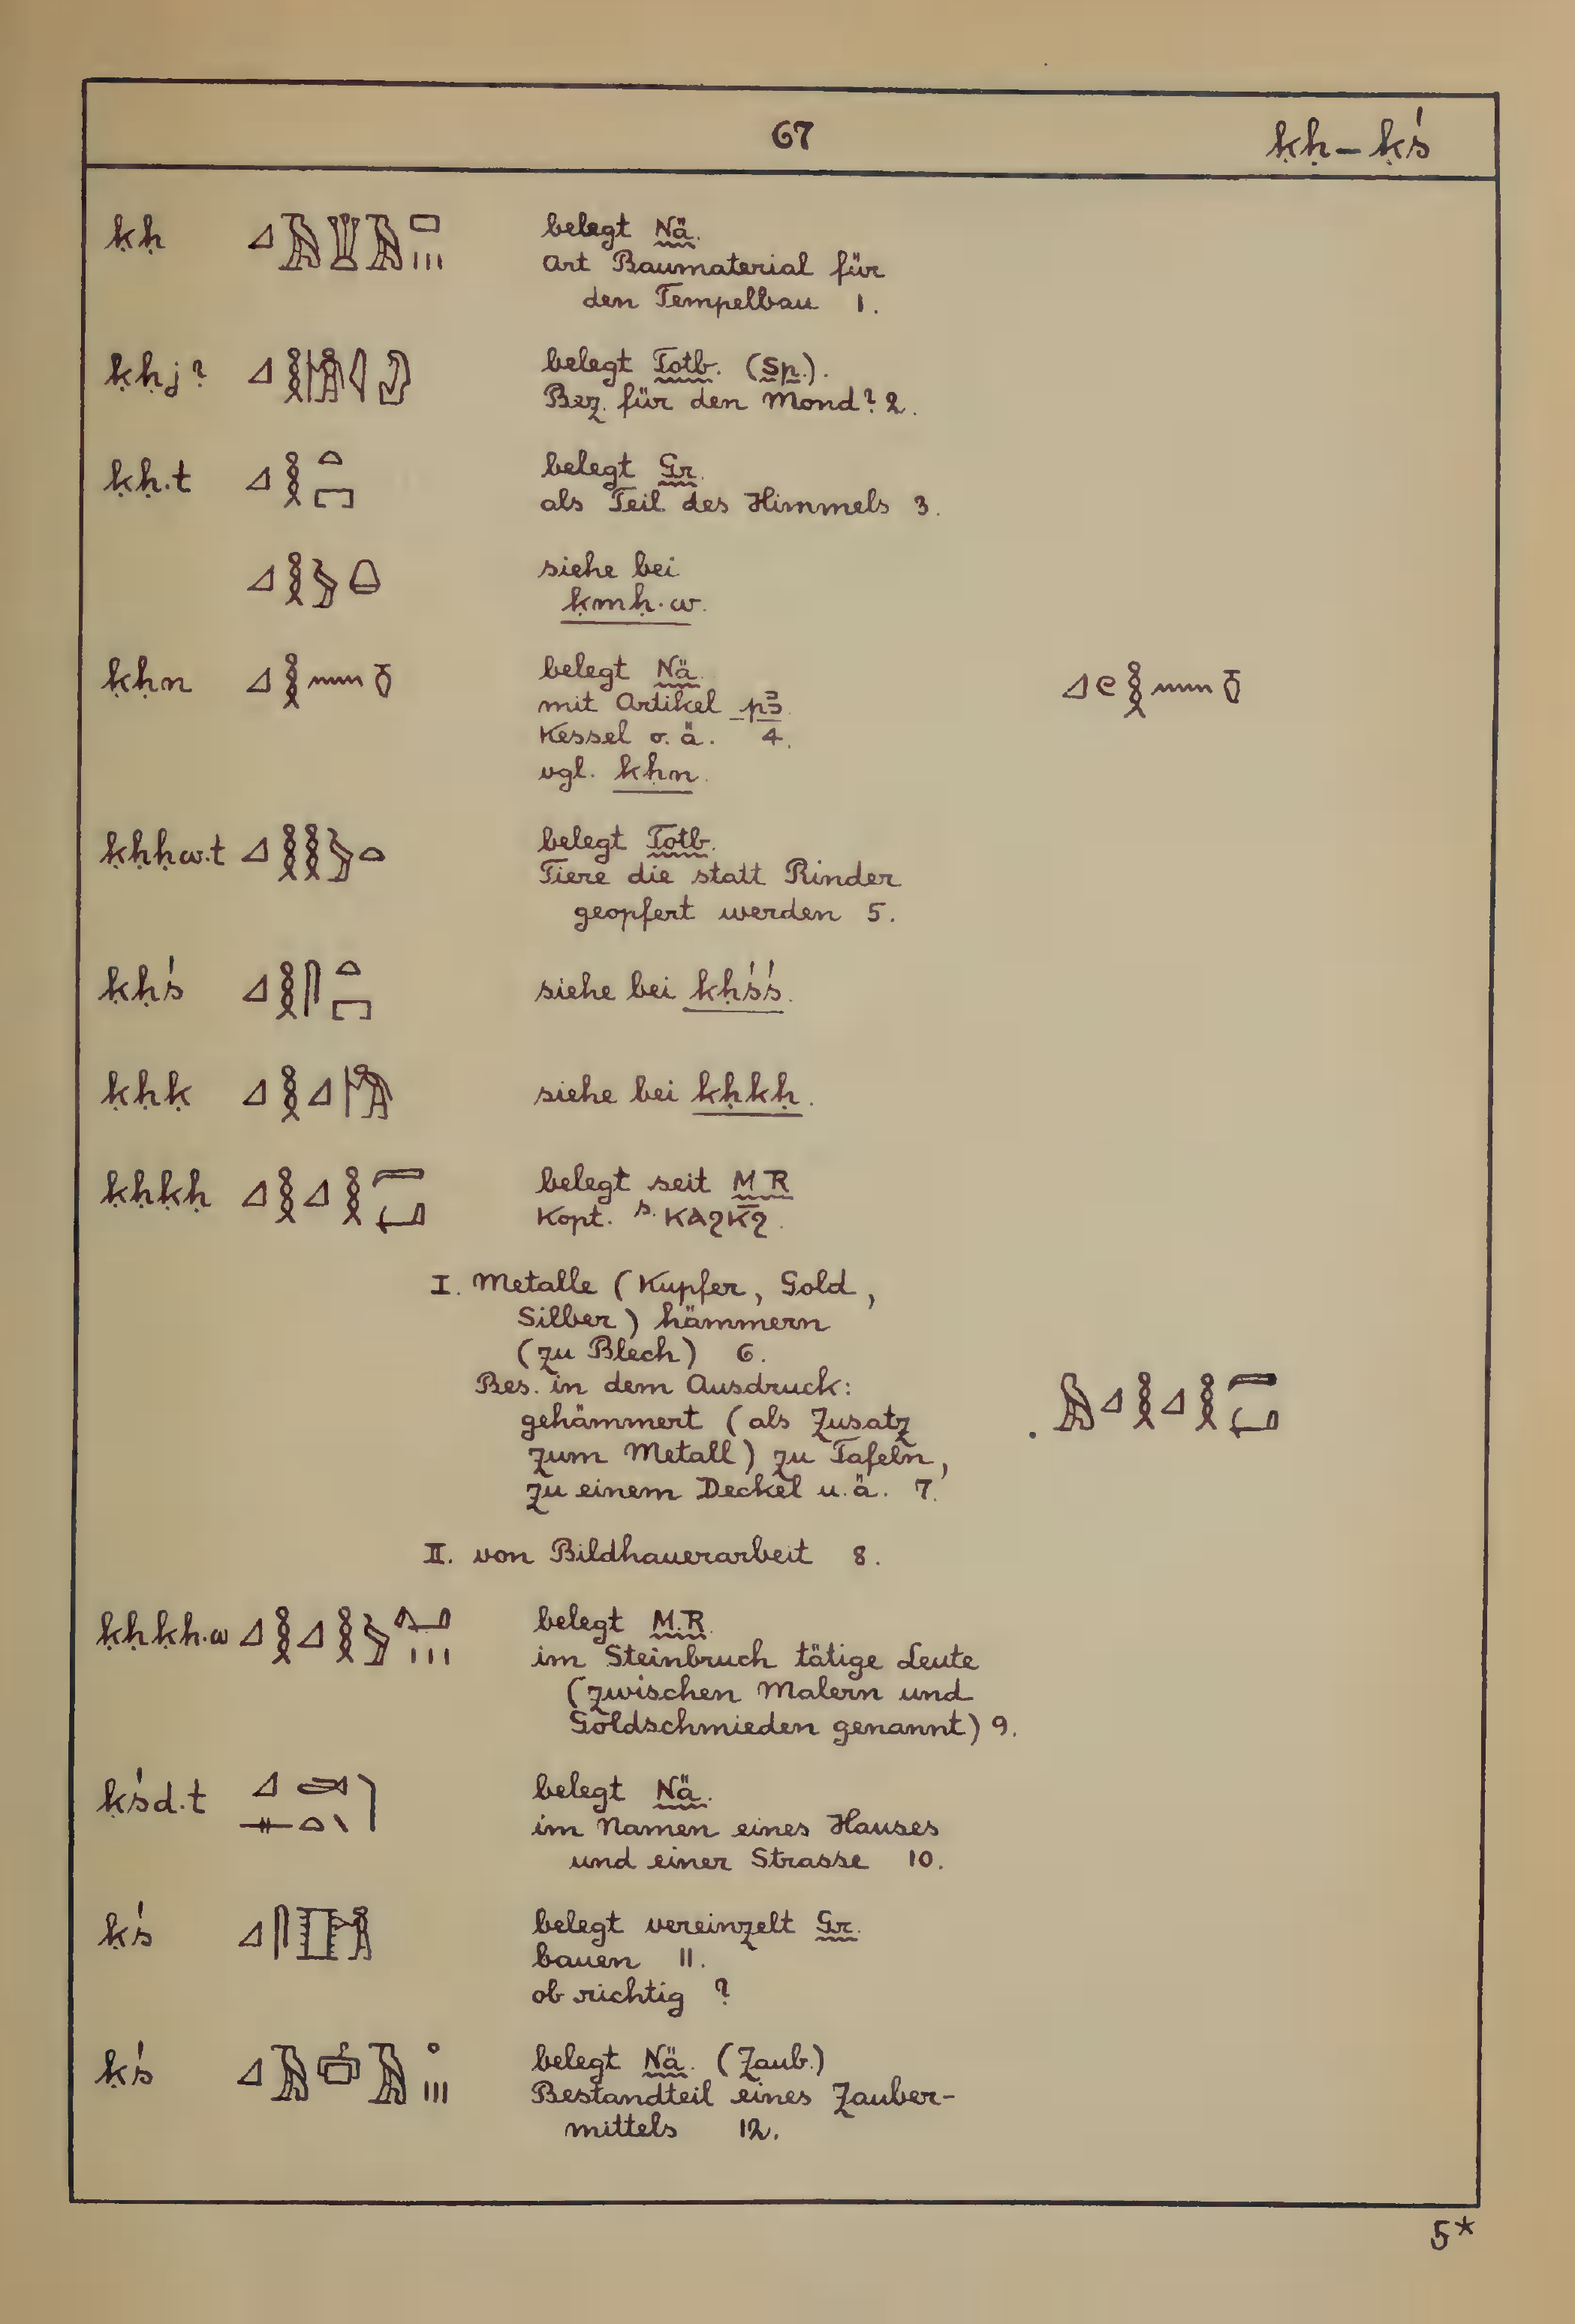 67 ḳḥ – ḳś
ḳḥ belegt Nä.
Art Baumaterial für
den Tempelbau 1.
ḳḥj? belegt Totb. (Sp.).
Bez. für den Mond? 2.
ḳḥ.t belegt Gr.
als Teil des Himmels 3.
siehe bei
ḳmḥ.w.
ḳḥn belegt Nä.
mit Artikel pꜣ.
Kessel o. ä. 4.
vgl. kḥn.
ḳḥḥw.t belegt Totb.
Tiere die statt Rinder
geopfert werden 5.
ḳḥś siehe bei ḳḥśś.
ḳḥḳ siehe bei ḳḥḳḥ.
ḳḥḳḥ belegt seit M R
Kopt. s. ⲕⲁϩⲕ̅ϩ.
I. Metalle (Kupfer, Gold,
Silber) hämmern
(zu Blech) 6.
Bes. in dem Ausdruck:
gehämmert (als Zusatz
zum Metall) zu Tafeln,
zu einem Deckel u. ä. 7.
II. von Bildhauerarbeit 8.
ḳḥḳḥ.w belegt M.R.
im Steinbruch tätige Leute
(zwischen Malern und
Goldschmieden genannt) 9.
ḳśd.t belegt Nä.
im Namen eines Hauses
und einer Strasse 10.
ḳś belegt vereinzelt Gr.
bauen 11.
ob richtig ?
ḳś belegt Nä. (Zaub.)
Bestandteil eines Zauber-
mittels 12.
5*